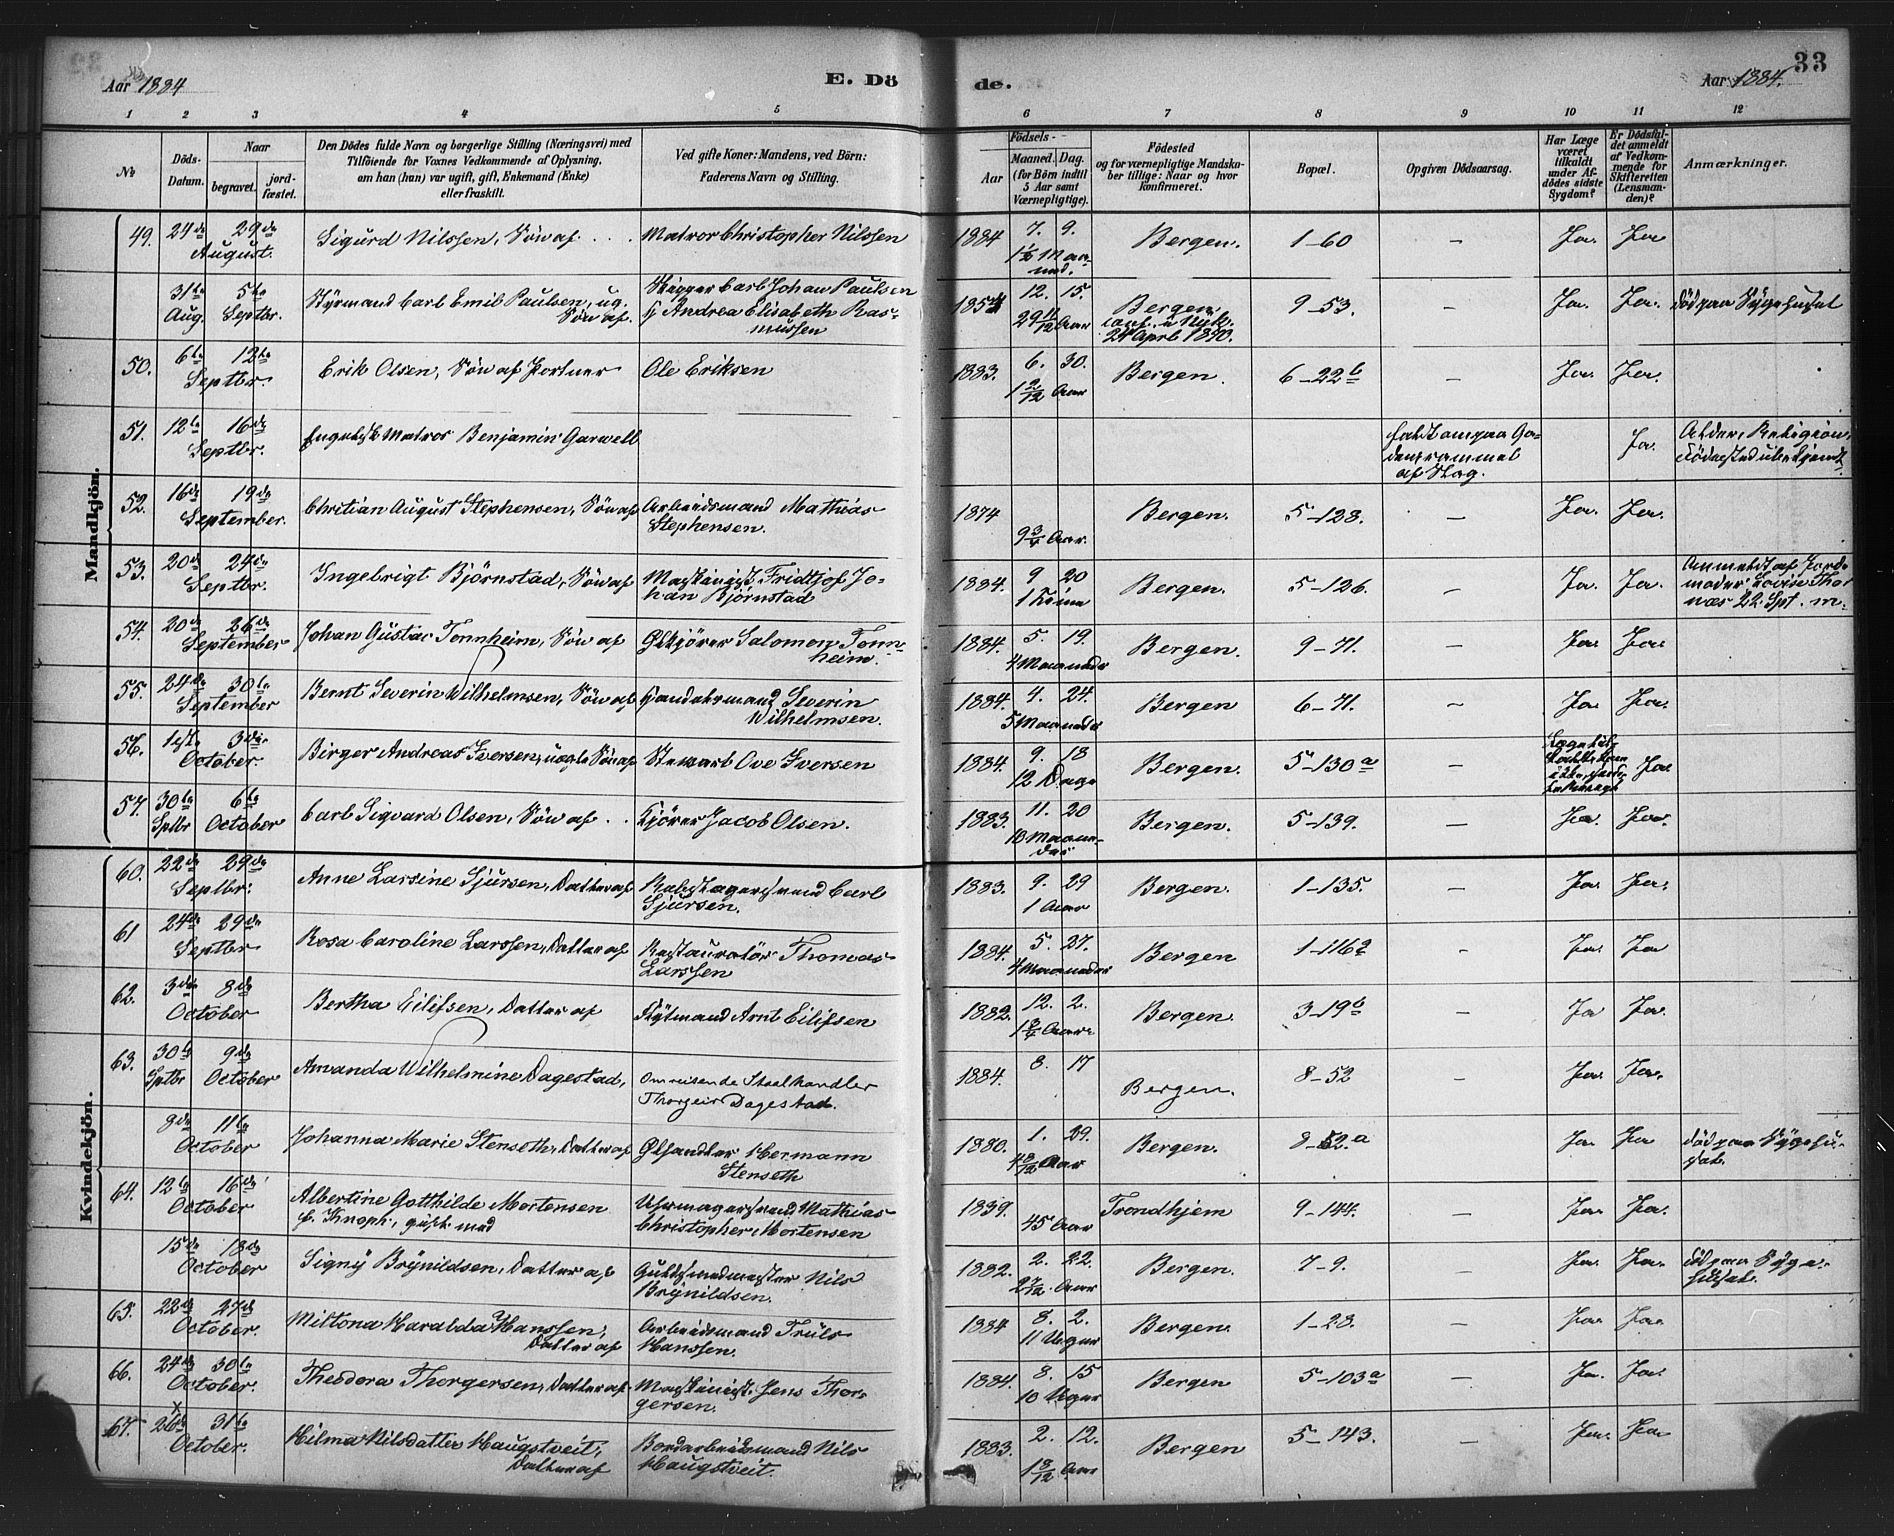 Aar 1884
E. Dö
de.
Aar 1884.
33
1 2 3 4 5 6 7 8 9 10 11 12
No
Döds-Datum.
Naar
begravet.
jord-fæstet.
Den Dödes fulde Navn og borgerlige Stilling (Næringsvei) med
Tilföiende for Voxnes Vedkommende af Oplysning,
om han (hun) var ugift, gift, Enkemand (Enke)
eller fraskilt.
Ved gifte Koner: Mandens, ved Börn:
Faderens Navn og Stilling.
Födsels-
Aar
Maaned. Dag.
(for Börn indtil
5 Aar samt
Værnepligtige).
Födested
og for værnepligtige Mandska-
ber tillige: Naar og hvor
konfirmeret.
Bopæl.
Opgiven Dödsaarsag.
Har Læge
været
tilkaldt
under Af-
dödes sidste
Sygdom?
Er Dödsfal-
det anmeldt
af Vedkom-
mende for
Skifteretten
(Lensman-
den)?
Anmærkninger.
Mandkjön.
49. 24de 29de August. Sigurd Nilssen, Søn af . . . Matros Christopher Nilssen 1884 7. 9. 1½ Maaned. Bergen. 1-60 - Ja. Ja
31te Aug. 5te Septbr. Styrmand Carl Emil Paulsen, ug. Søn af Skipper Carl Johan Paulsen og Andrea Elisabeth Rasmussen 1854 12. 15. 29 Aar Bergen, 24 April 1870. 9-53. - Ja. Ja. død paa Sygehuset
50. 6te 12te Septbr Erik Olsen, Søn af Portner Ole Eriksen 1883. 6. 30. 1 2/12 Aar Bergen. 6-22b - Ja. Ja.
51. 12te 16de Septbr. Engelsk Matros Benjamin Garwell Ja. Alder, Religion, Fødested ubekjendt
52. 16de 19de September. Christian August Stephensen, Søn af Arbeidsmand Mathias Stephensen. 1874 9¾ Aar. Bergen. 5-128. - Ja. Ja.
53. 20de 24de Septbr. Ingebrigt Bjørnstad, Søn af Maskinist Fridtjof Johan Bjørnstad 1884. 9 20 1 Time Bergen. 5-126. - Ja. Ja. Anmeldt af Jordmoder Lovise 22 Spt.
54. 20de 26de September Johan Gustav Tonnheim, Søn af Ølkjører Salomon Tonnheim. 1884. 5. 19. 4 Maaneder Bergen. 9-71. - Ja. Ja.
55. 24de 30te September Bernt Severin Wilhelmsen, Søn af Handelsmand Severin Wilhelmsen. 1884. 4. 24. 5 Maaneder Bergen 6-71. - Ja. Ja.
56. 1ste 3die October. Birger Andreas Iversen, uægte Søn af Steward Ove Iversen 1884. 9. 18 12 Dage Bergen. 5-130a - Ja.
57. 30te Sptbr 6te October Carl Sigvard Olsen, Søn af . . Kjører Jacob Olsen. 1883. 11. 20 10 Maaneder Bergen. 5-139. - Ja. Ja.
Kvindekjön.
60. 22de 29de Septbr. Anne Larsine Sjursen, Datter af Rebslagersvend Carl Sjursen. 1883. 9. 29 1 Aar Bergen. 1-135. - Ja. Ja.
61 24de 29de Septbr Rosa Caroline Larssen, Datter af Restauratør Thomas Larssen 1884. 5. 27. 4 Maaneder Bergen 1-116a - Ja. Ja
62. 3die 8de October Bertha Eilifsen, Datter af Fløtmand Arnt Eilifsen 1882. 12. 2. 1¾ Aar. Bergen. 3-19b - Ja Ja.
63. 30te Sptbr 9de October Amanda Wilhelmine Dagestad, Omreisende Staalhandler Thorgeir Dagestad. 1884. 8. 17 Bergen. 8-52 - Ja. Ja.
8de 11te October Johanna Marie Stenseth, Datter af Ølhandler Hermann Stenseth 1880. 1. 29. 4 8/12 Aar Bergen. 8-52a - Ja Ja død paa Sygehuset.
64. 12te 16de October Albertine Gotthilde Mortensen f. Knoph, gift med Uhrmagersvend Mathias Christopher Mortensen 1839. 45 Aar Trondhjem 9-144. - Ja. Ja.
15de 18de October Signy Brynildsen, Datter af Guldsmedmester Nils Brynildsen. 1882. 2. 22. 2 7/12. Aar Bergen. 7-9. - Ja. Ja. død paa Sygehuset.
65. 22de 27de October. Miltona Haralda Hanssen, Datter af Arbeidsmand Truls Hanssen. 1884 8. 2. 11 Uger Bergen. 1-23. - Ja. Ja.
66. 24de 30te October. Theodora Thorgersen, Datter af Maskinist Jens Thorgersen. 1884. 8. 15 10 Uger Bergen 5-103a - Ja. Ja.
67. 26de 31te October. Hilma Nilsdatter Haugstveit, Datter af Bordarbeidsmand Nils Haugstveit. 1883. 2. 12. 1 8/12 Aar Bergen 5-143. - Ja. Ja